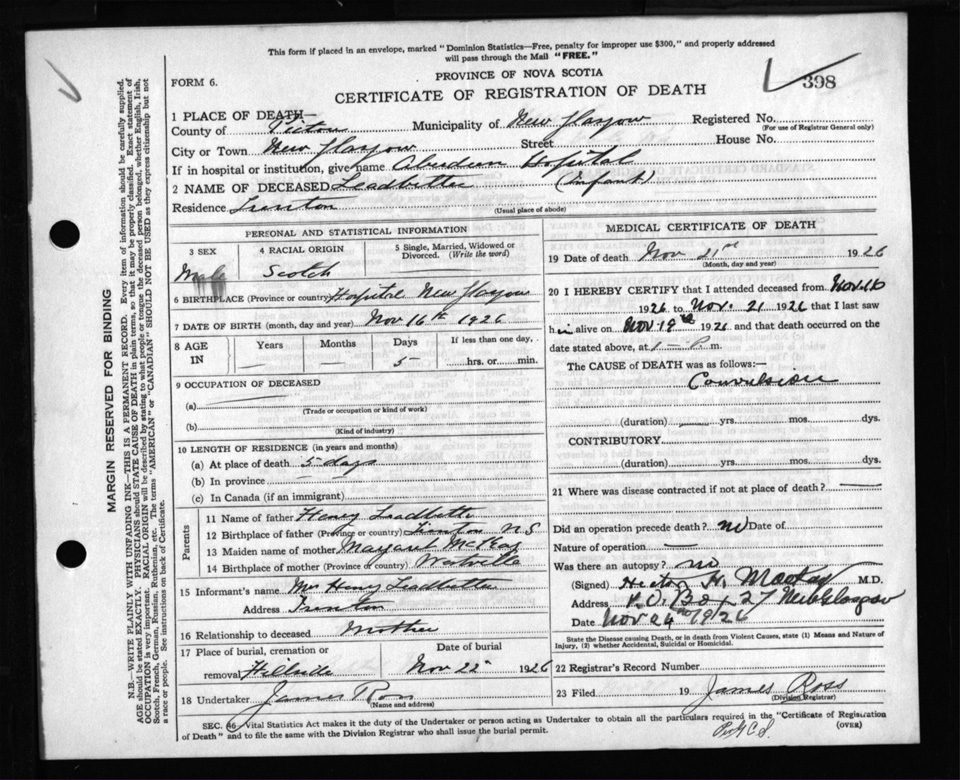 This form if placed in an envelope, marked "Dominion Statistics—Free, penalty for improper use $300," and properly addressed
will pass through the Mail "FREE."
FORM 6.
PROVINCE OF NOVA SCOTIA
398
CERTIFICATE OF REGISTRATION OF DEATH
1 PLACE OF DEATH—
County of Pictou Municipality of New Glasgow Registered No.
(For use of Registrar General only)
City or Town New Glasgow Street House No.
If in hospital or institution, give name Aberdeen Hospital
2 NAME OF DECEASED Leadbetter (Infant)
Residence Trenton
(Usual place of abode)
PERSONAL AND STATISTICAL INFORMATION
3 SEX 4 RACIAL ORIGIN 5 Single, Married, Widowed or Divorced. (Write the word)
Male Scotch
6 BIRTHPLACE (Province or country) Hospital New Glasgow
7 DATE OF BIRTH (month, day and year) Nov 16th 1926
8 AGE IN Years Months Days If less than one day,
— — 5 hrs. or min.
9 OCCUPATION OF DECEASED
(a)
(Trade or occupation or kind of work)
(b)
(Kind of industry)
10 LENGTH OF RESIDENCE (in years and months)
(a) At place of death 5 days
(b) In province
(c) In Canada (if an immigrant)
Parents
11 Name of father Henry Leadbetter
12 Birthplace of father (Province or country) Trenton N S
13 Maiden name of mother Margaret
14 Birthplace of mother (Province or country)
15 Informant's name Mrs Henry Leadbetter
Address Trenton
16 Relationship to deceased Mother
17 Place of burial, cremation or Date of burial
removal Hillside Nov 22 1926
18 Undertaker James Ross
(Name and address)
MEDICAL CERTIFICATE OF DEATH
19 Date of death Nov 21st 1926
(Month, day and year)
20 I HEREBY CERTIFY that I attended deceased from Nov. 16
1926 to Nov. 21 1926 that I last saw
him alive on Nov 19th 1926 and that death occurred on the
date stated above, at 1 - P. m.
The CAUSE OF DEATH was as follows:—
Convulsion
(duration) yrs. mos. dys.
CONTRIBUTORY
(duration) yrs. mos. dys.
21 Where was disease contracted if not at place of death? —
Did an operation precede death? no Date of
Nature of operation —
Was there an autopsy? no
(Signed) Hector H. MacKay M.D.
Address P.O. Box 27 New Glasgow
Date Nov 24th 1926
State the Disease causing Death, or in death from Violent Causes, state (1) Means and Nature of
Injury, (2) whether Accidental, Suicidal or Homicidal.
22 Registrar's Record Number
23 Filed 19 James Ross
(Division Registrar)
SEC. 46 Vital Statistics Act makes it the duty of the Undertaker or person acting as Undertaker to obtain all the particulars required in the "Certificate of Registration
of Death" and to file the same with the Division Registrar who shall issue the burial permit.
(OVER)
MARGIN RESERVED FOR BINDING
N.B.—WRITE PLAINLY WITH UNFADING INK—THIS IS A PERMANENT RECORD. Every item of information should be carefully supplied.
AGE should be stated EXACTLY. PHYSICIANS should STATE CAUSE OF DEATH in plain terms, so that it may be properly classified. Exact statement of
OCCUPATION is very important. RACIAL ORIGIN will be described by stating to what people or tongue the deceased person belonged, whether English, Irish,
Scotch, French, German, Russian, Ruthenian, etc. The terms "AMERICAN" or "CANADIAN" SHOULD NOT BE USED as they express citizenship but not
a race or people. See instructions on back of Certificate.